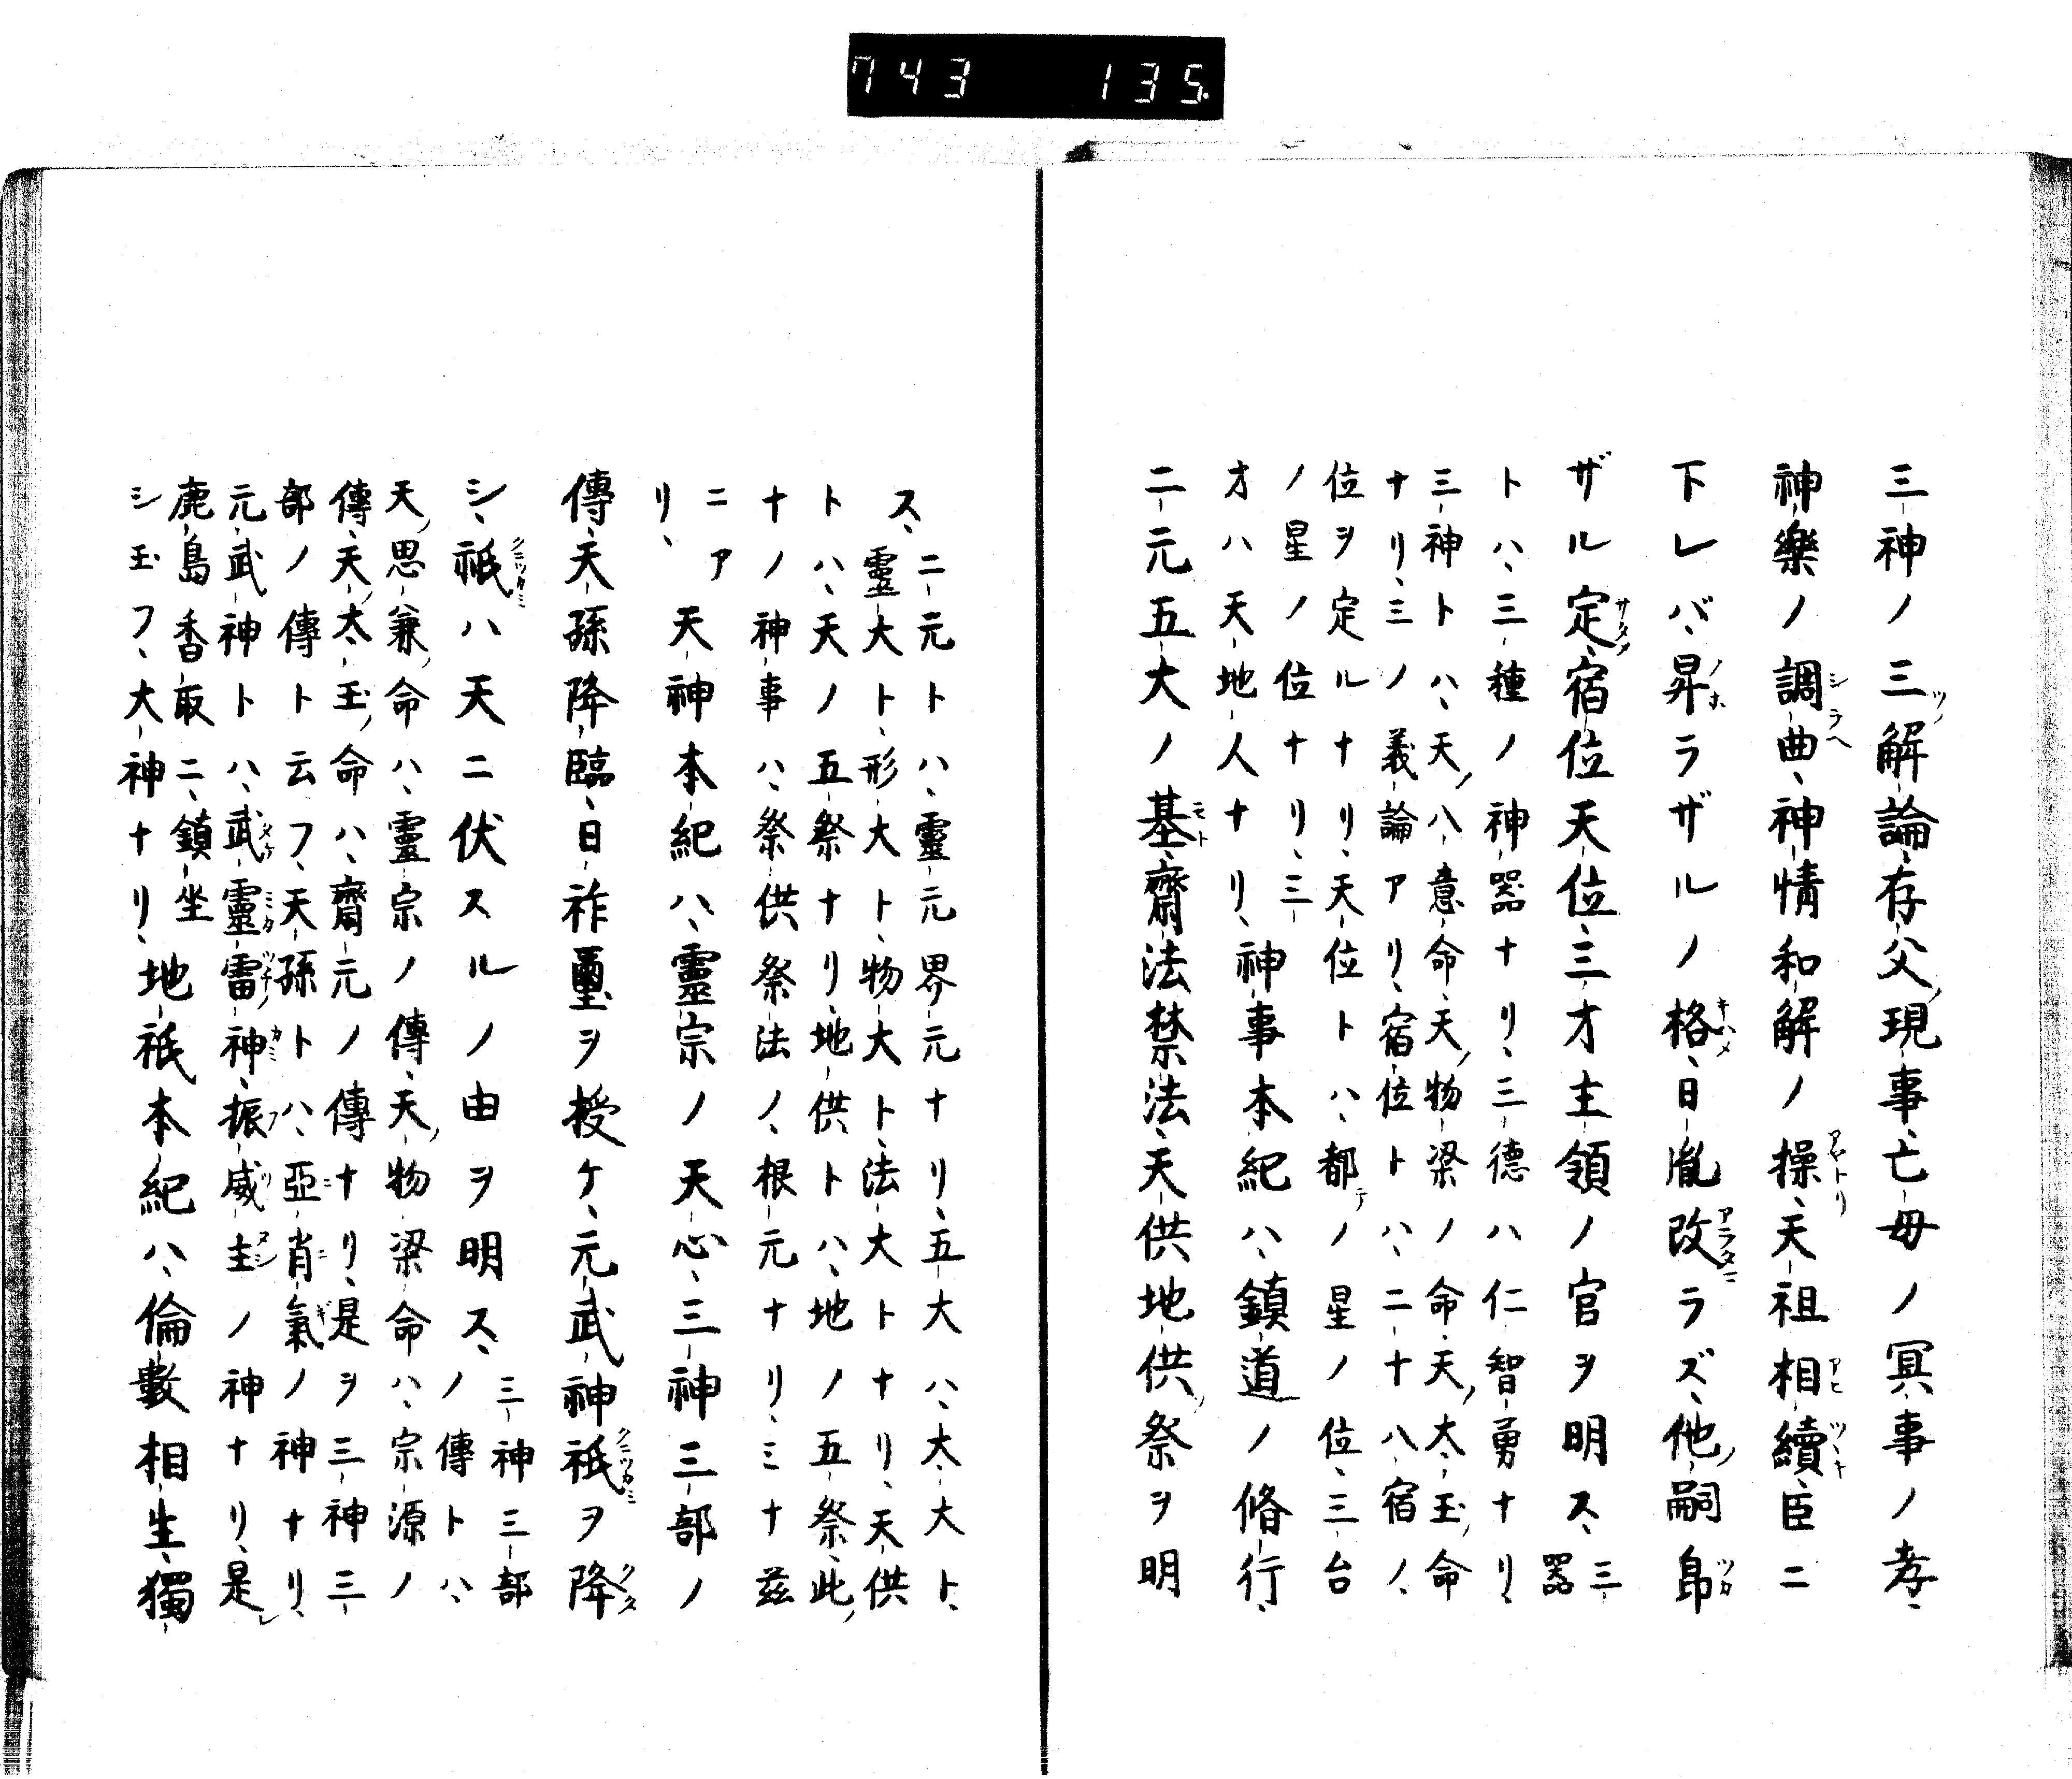 743 135.
三神ノ三解論、存父現事、亡母ノ冥事ノ孝、
神樂ノ調曲、神情和解ノ操、天祖相續、臣ニ
下レバ、昇ラザルノ格、日胤改ラズ、他嗣
ザル定、宿位天位、三才主領ノ官ヲ明ス、三器
トハ、三種ノ神器ナリ、三德ハ仁智勇ナリ、
三神トハ、天八意命天物梁ノ命天大玉命
ナリ、三ノ義論アリ、宿位トハ、二十八宿ノ、
位ヲ定ルナリ、天位トハ、都ノ星ノ位、三台
ノ星ノ位ナリ、三
才ハ天地人ナリ、神事本紀ハ、鎮道ノ脩行、
二元五大ノ基、齋法禁法、天供地供祭ヲ明
ス、二元トハ、靈元界元ナリ、五大ハ、大大ト、
靈大ト、形大ト、物大ト、法大トナリ、天供
トハ、天ノ五祭ナリ、地供トハ、地ノ五祭、此
ナノ神事ハ、祭供祭法ノ、根元ナリ、ミナ茲
ニアリ、天神本紀ハ、靈宗ノ天心、三神三部ノ
傳、天孫降臨、日祚璽ヲ授ケ、元武神祇ヲ降
シ、祇ハ天ニ伏スルノ由ヲ明ス、三神三部ノ傳トハ、
天思兼命ハ、靈宗ノ傳、天物梁命ハ、宗源ノ
傳、天太玉命ハ、齋元ノ傳ナリ、是ヲ三神三
部ノ傳ト云フ、天孫トハ、亞肖氣ノ神ナリ、
元武神トハ、武靈雷神、振威主ノ神ナリ、是
鹿島香取ニ、鎮坐
シ玉フ、大神ナリ、地祇本紀ハ、倫數相生、獨